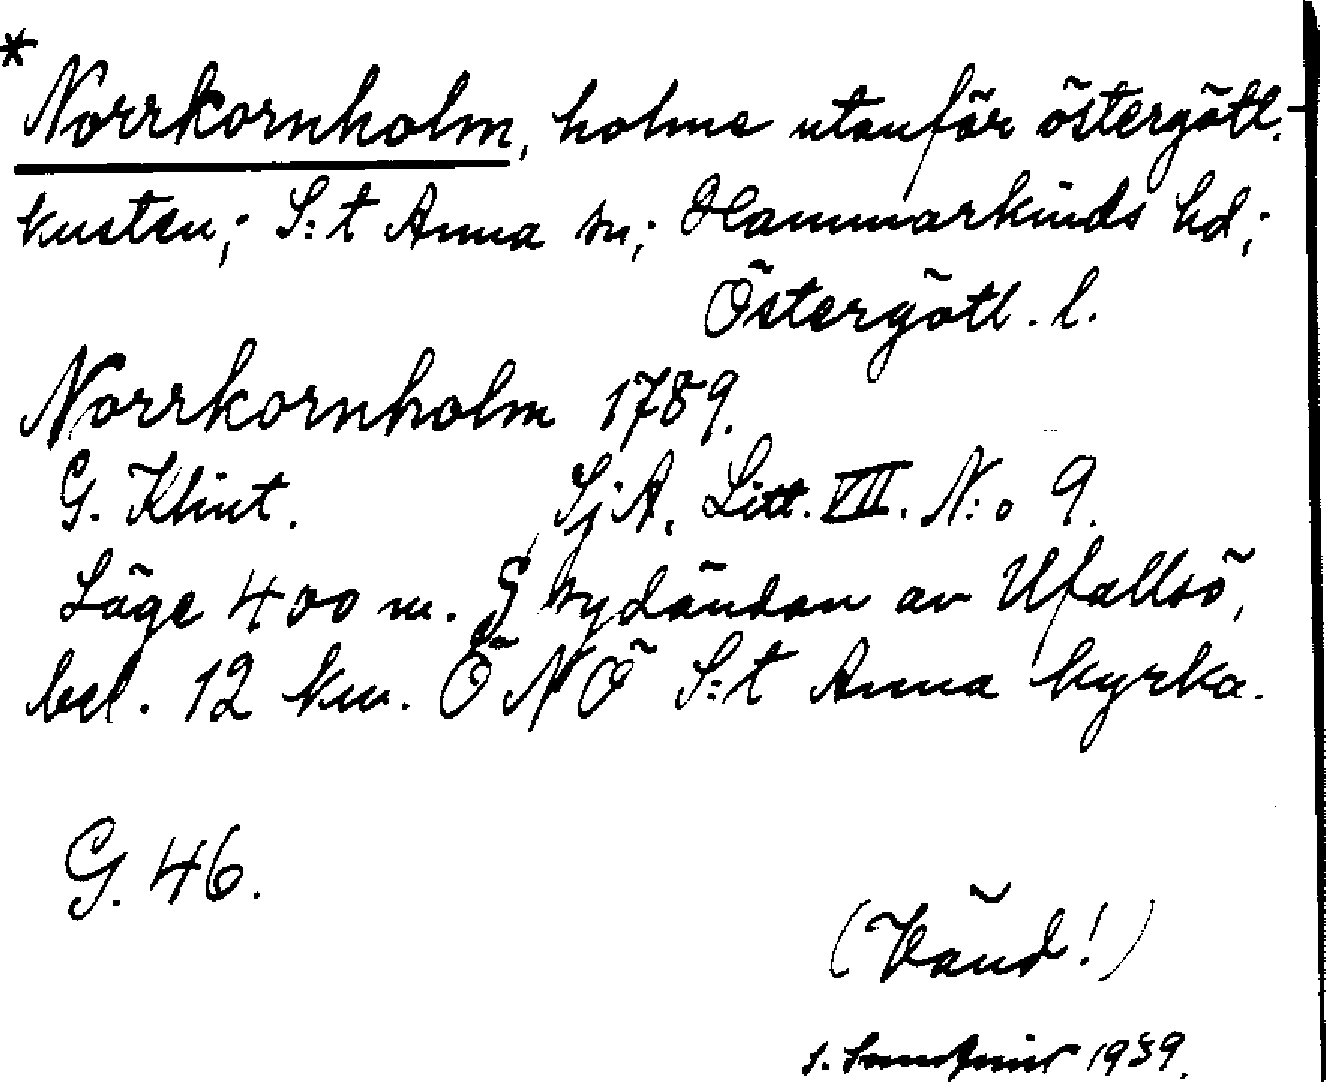 * Norrkornholm, holme utanför östergötl.-
kusten; S:t Anna sn; Hammarkinds hd;
Östergötl. l.
Norrkornholm 1789.
G. Klint. SjA. Litt. VII. N:o 9.
Läge 400 m. S sydändan av Ufallsö,
bel. 12 km. ÖNÖ S:t Anna kyrka.
G. 46.
(Vänd!)
1939.